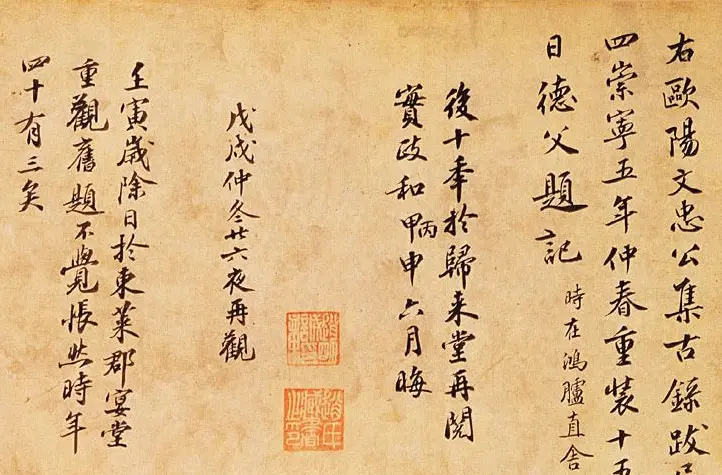 右歐陽文忠公集古錄跋
四崇寧五年仲春重裝十五
日德父題記
時在鴻臚直舍
後十年於歸来堂再閱
實政和甲丙申六月晦
戊戌仲冬廿六夜再觀
壬寅歲除日於東萊郡宴堂
重觀舊題不覺悵然時年
四十有三矣